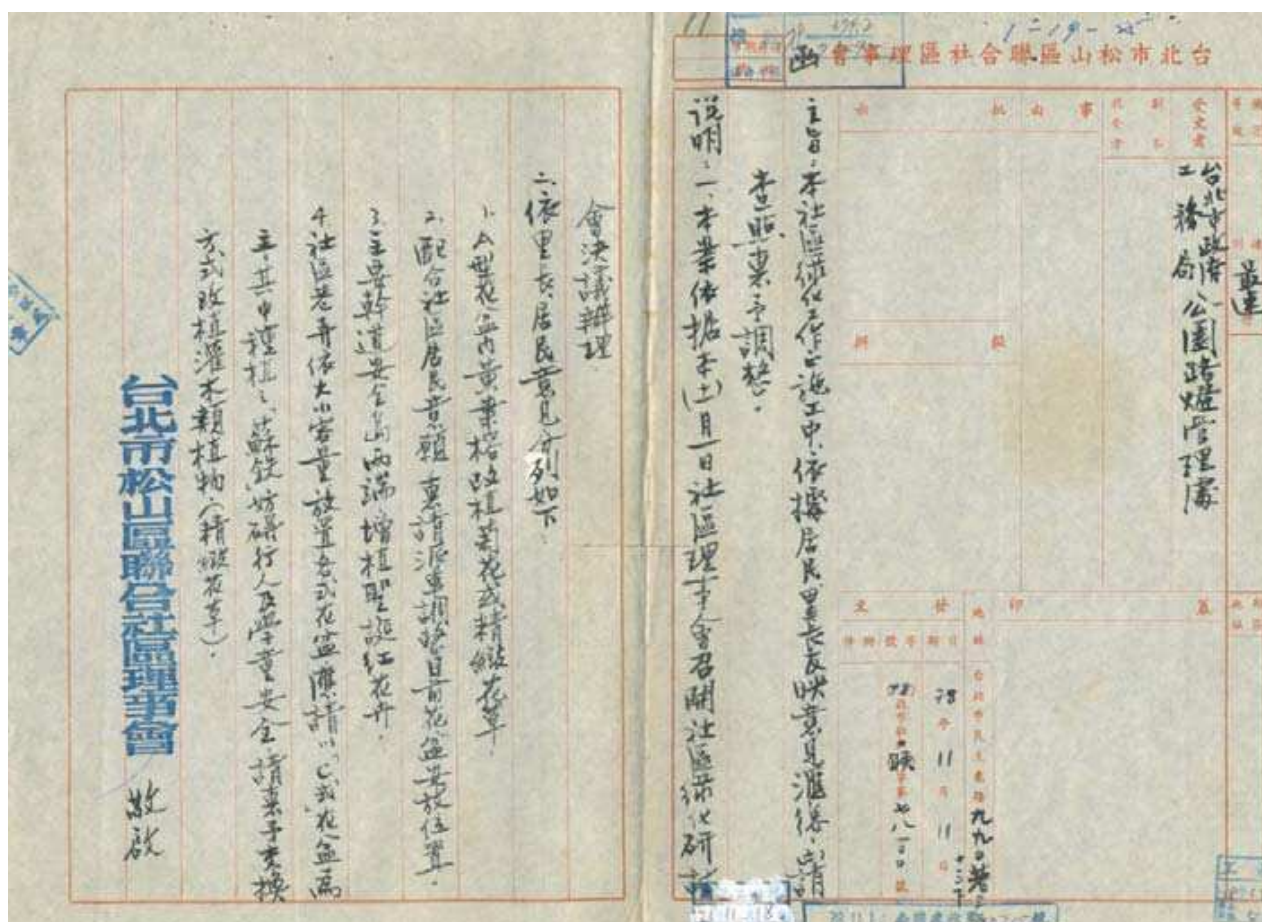 台北市松山區聯合社區理事會 函
受文者
台北市政府
工務局公園路燈管理處
最速件
副本
收受者
事由
批示
擬辦
蓋印
發文
日期 78年11月11日
字號
附件
地址 台北市民生東路九九〇巷
主旨：本社區綠化工作已施工中，依據居民里長反映意見滙總，函請
查照惠予調整。
說明：一、本案依據本(十一)月一日社區理事會召開社區綠化研討
會決議辦理
二、依里長、居民意見分列如下：
1、A型花盆內黃葉榕改植菊花或精緻花草。
2、配合社區居民意願惠請派車調整目前花盆安放位置。
3、主要幹道安全島兩端增植聖誕紅花卉。
4、社區巷弄依大小容量放置各式花盆應請以C式花盆為
主，其中種植之「蘇鐵」妨碍行人及學童安全請惠予更換
方式改植灌木類植物（精緻花草）。
台北市松山區聯合社區理事會 敬啟